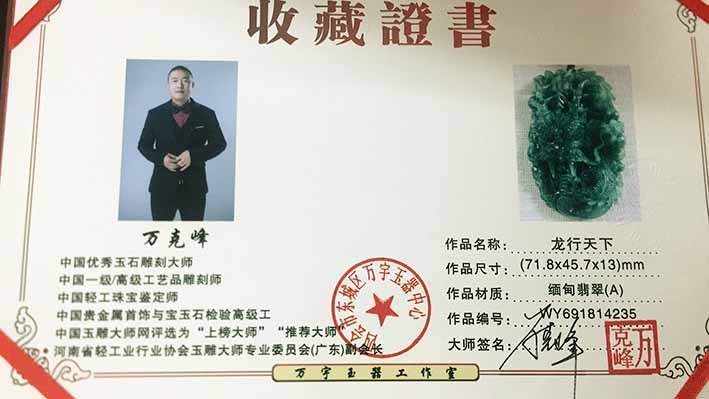 收藏證書
万克峰
中国优秀玉石雕刻大师
中国一级/高级工艺品雕刻师
中国轻工珠宝鉴定师
中国贵金属首饰与宝玉石检验高级工
中国玉雕大师网评选为“上榜大师”“推荐大师”
河南省轻工业行业协会玉雕大师专业委员会(广东)副会长
四会市东城区万宇玉器中心
作品名称： 龙行天下
作品尺寸： (71.8x45.7x13)mm
作品材质： 缅甸翡翠(A)
作品编号： WY691814235
大师签名：
万克峰
万宇玉器工作室